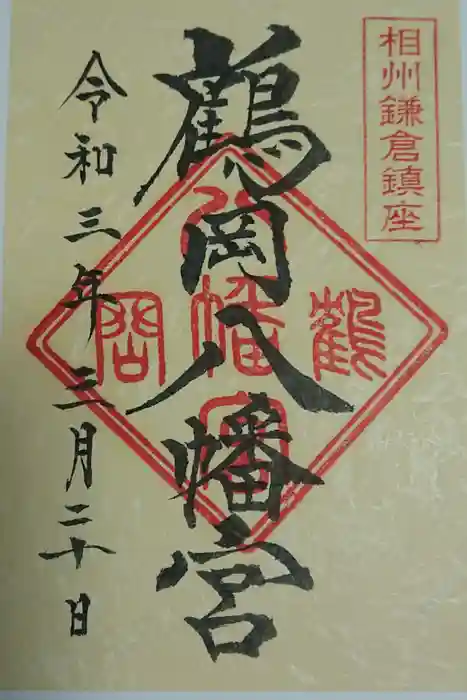 相州鎌倉鎮座
鶴岡八幡宮
令和三年三月二十日
鶴
八幡宮
岡